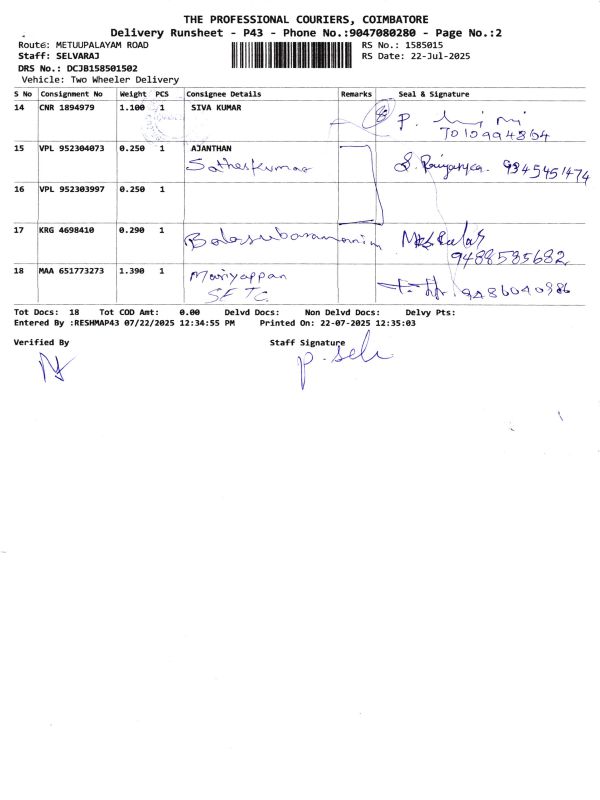 THE PROFESSIONAL COURIERS, COIMBATORE
Delivery Runsheet - P43 - Phone No.:9047080280 - Page No.:2
Route: METUUPALAYAM ROAD RS No.: 1585015
Staff: SELVARAJ RS Date: 22-Jul-2025
DRS No.: DCJB158501502
Vehicle: Two Wheeler Delivery
S No Consignment No Weight PCS Consignee Details Remarks Seal & Signature
14 CNR 1894979 1.100 1 SIVA KUMAR
P.
15 VPL 952304073 0.250 1 AJANTHAN
Satheskumar S. Priyanka. 9345451474
16 VPL 952303997 0.250 1
17 KRG 4698410 0.290 1 Balasubaramanim
9488585682
18 MAA 651773273 1.390 1 Mariyappan
9486040986
Tot Docs: 18 Tot COD Amt: 0.00 Delvd Docs: Non Delvd Docs: Delvy Pts:
Entered By :RESHMAP43 07/22/2025 12:34:55 PM Printed On: 22-07-2025 12:35:03
Verified By Staff Signature
P. Selv